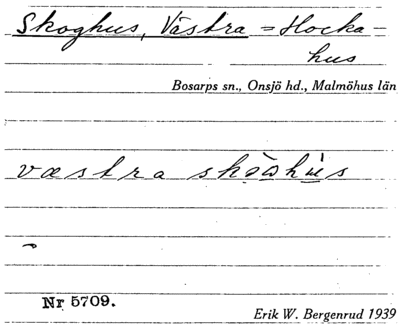 Skoghus, Västra = Hocka-
hus
Bosarps sn., Onsjö hd., Malmöhus län
væstra
Nr 5709.
Erik W. Bergenrud 1939